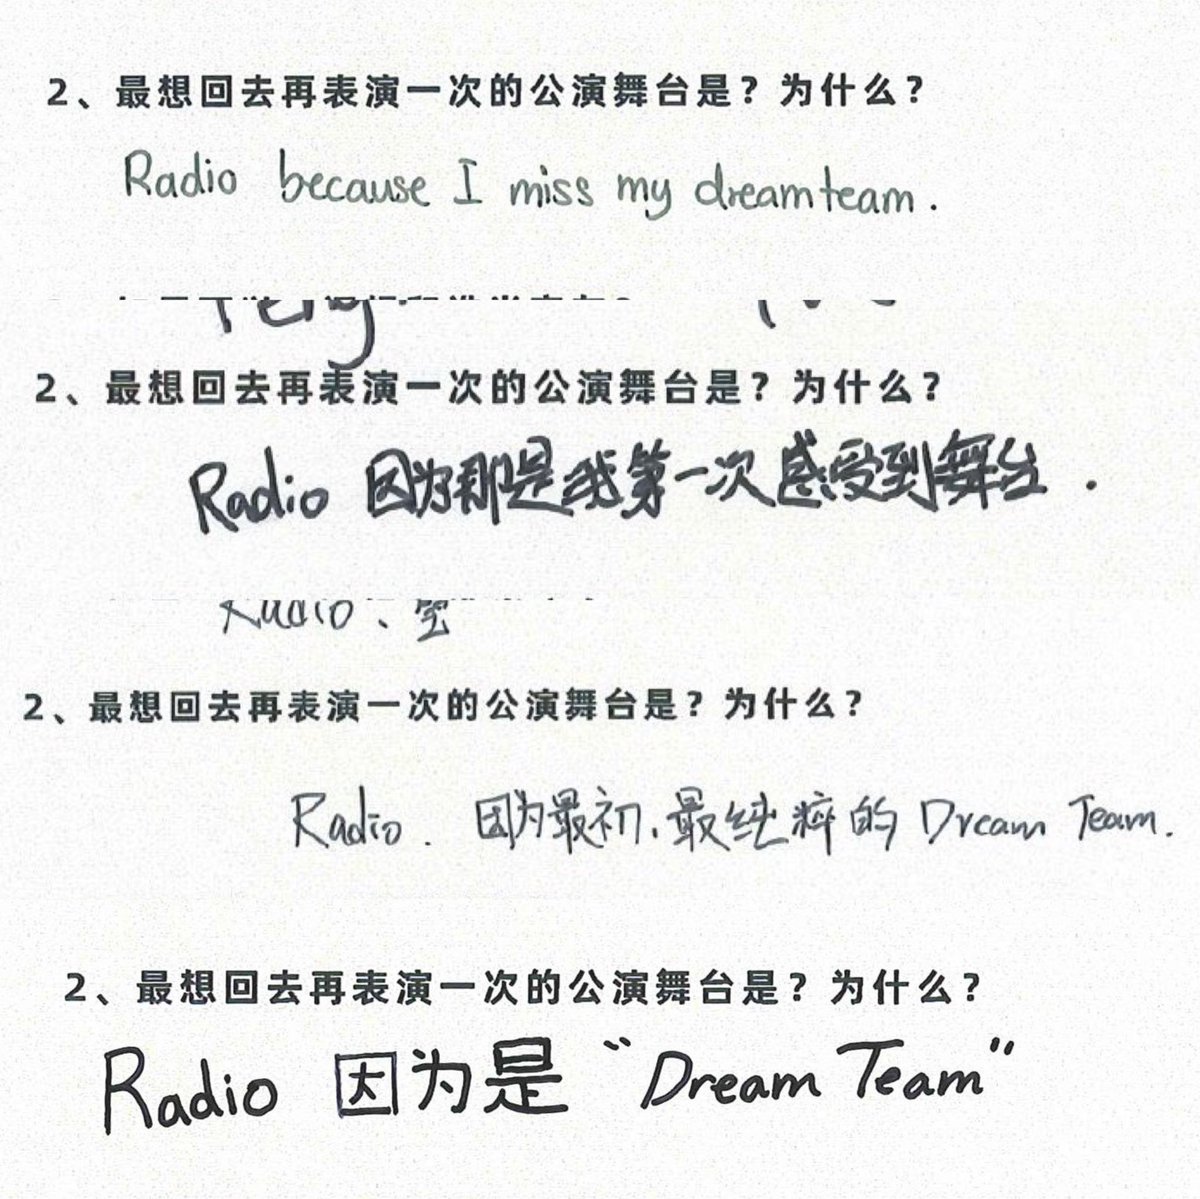 2、最想回去再表演一次的公演舞台是？为什么？
Radio because I miss my dreamteam.
2、最想回去再表演一次的公演舞台是？为什么？
Radio 因为那是我第一次感受到舞台.
2、最想回去再表演一次的公演舞台是？为什么？
Radio. 因为最初、最纯粹的 Dream Team.
2、最想回去再表演一次的公演舞台是？为什么？
Radio 因为是 "Dream Team"